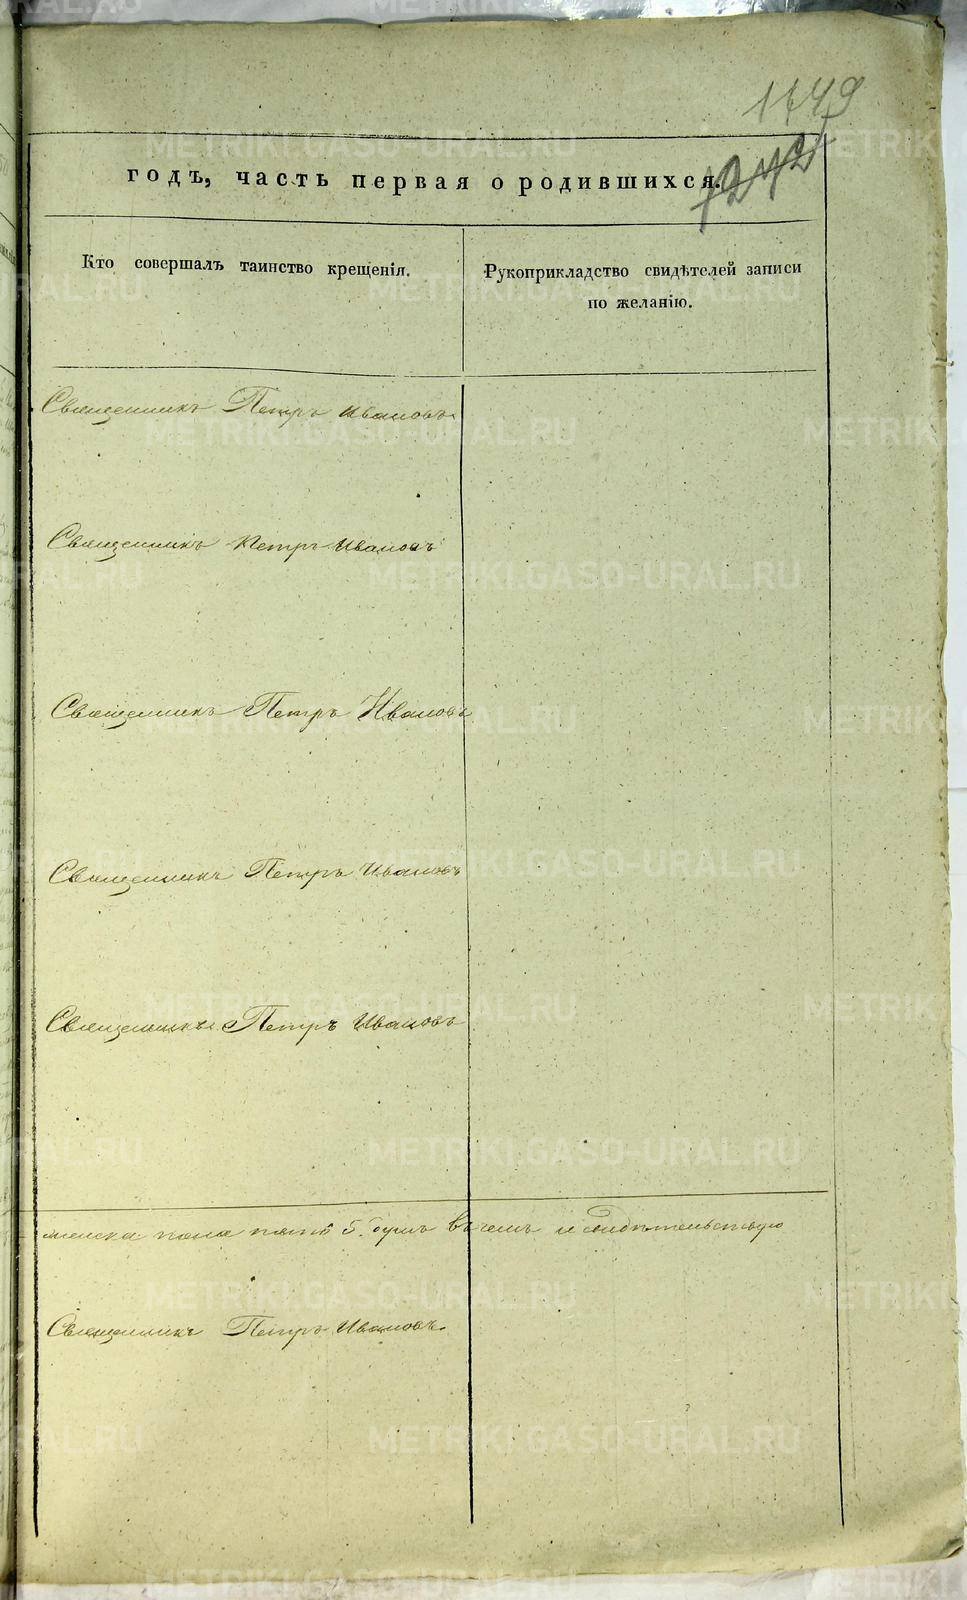 1749
1242
годъ, часть первая о родившихся.
Кто совершалъ таинство крещенія.
Рукоприкладство свидѣтелей записи
по желанію.
Священникъ Петръ Ивановъ.
Священникъ Петръ Ивановъ
Священникъ Петръ Ивановъ
Священникъ Петръ Ивановъ
Священникъ Петръ Ивановъ
женска пола пять 5. душъ въ чемъ и свидѣтельствую
Священникъ Петръ Ивановъ.
METRIKI.GASO-URAL.RU